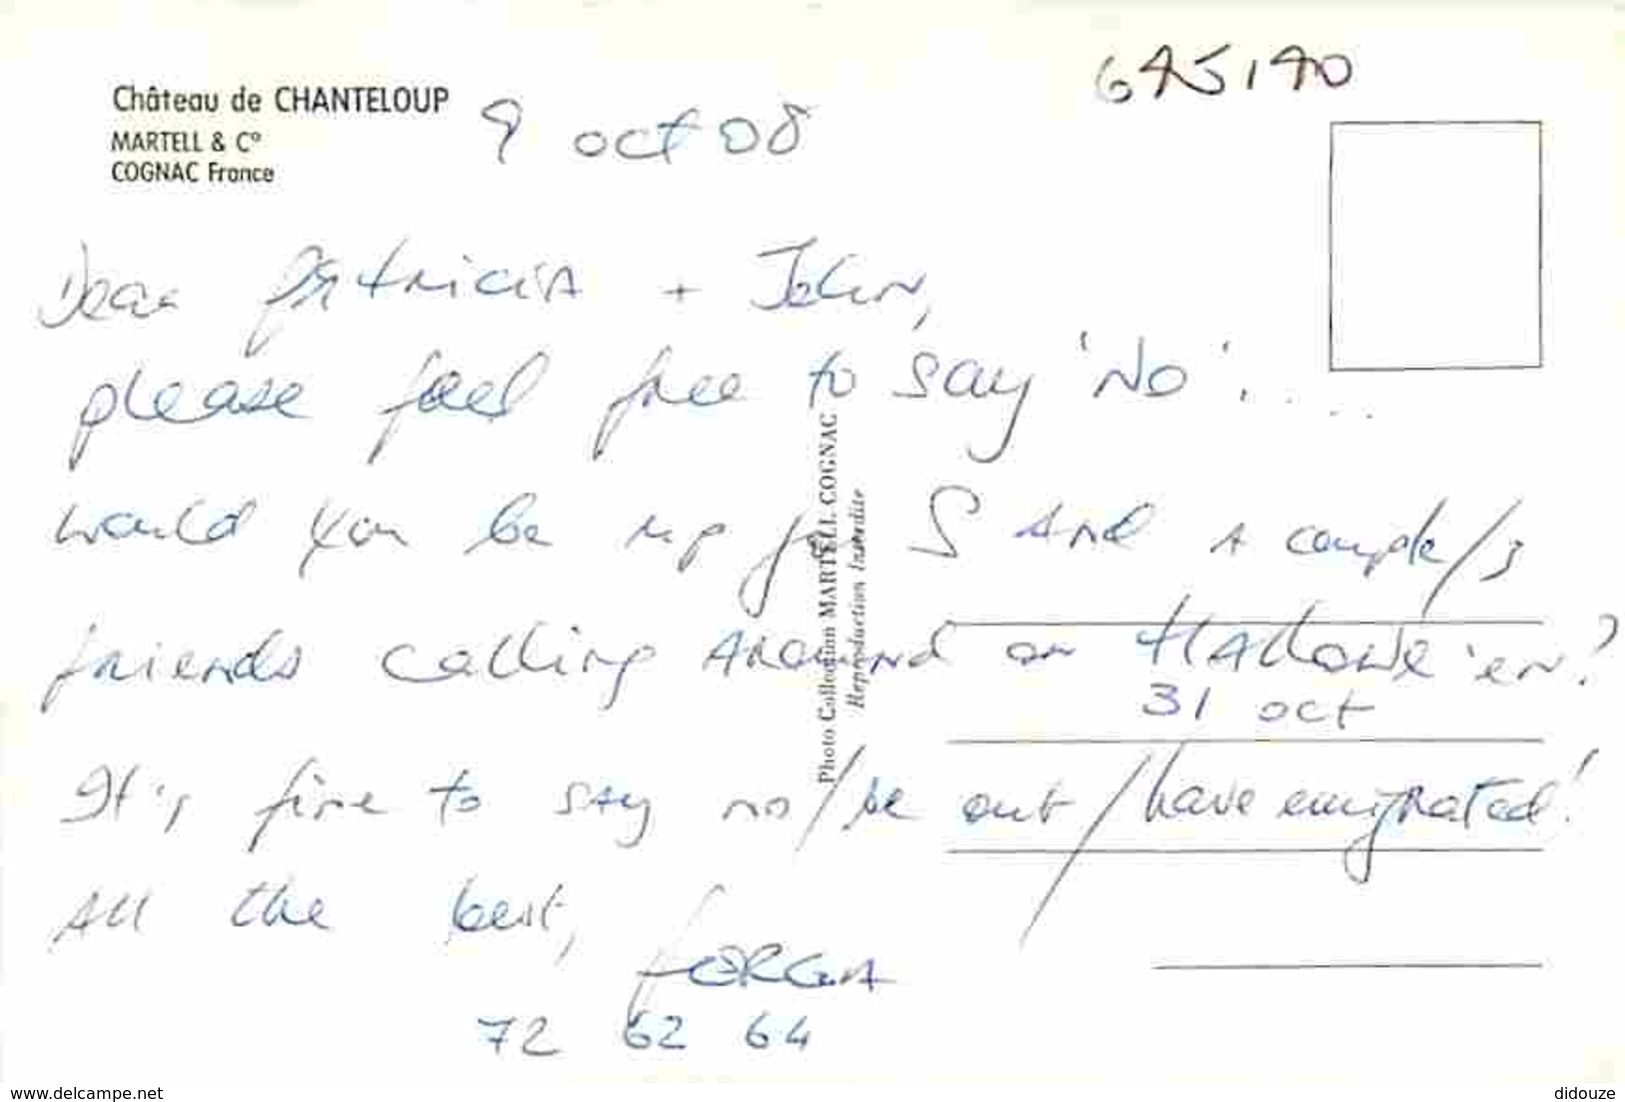 Château de CHANTELOUP
MARTELL & C°
COGNAC France
9 oct 08
645170
Dear Patricia + John,
please feel free to say 'No'....
would you be up for S and a couple/3
friends calling around on Hallowe'en?
31 oct
It's fine to say no/be out/have emigrated!
All the best,
72 62 64
Photo Collection MARTELL COGNAC
Reproduction Interdite
www.delcampe.net
didouze